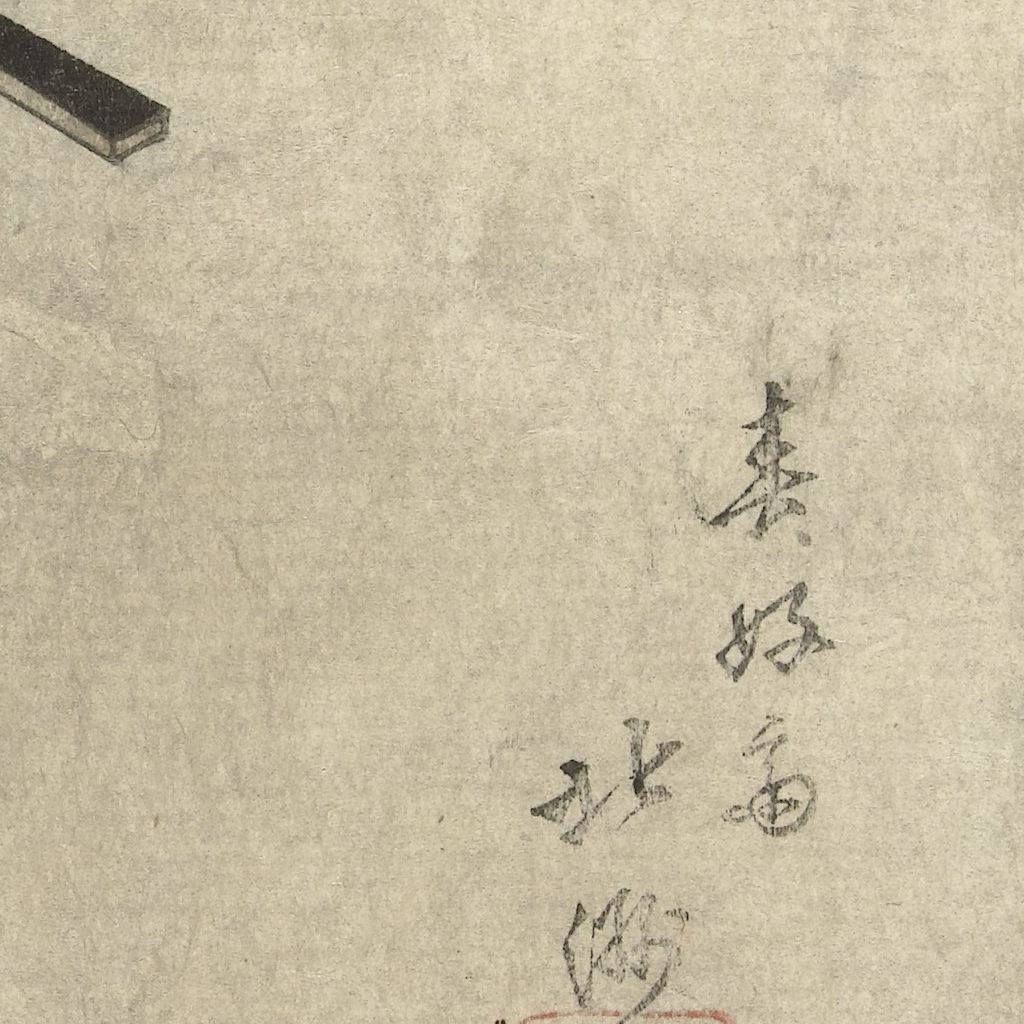 春好斎
北洲